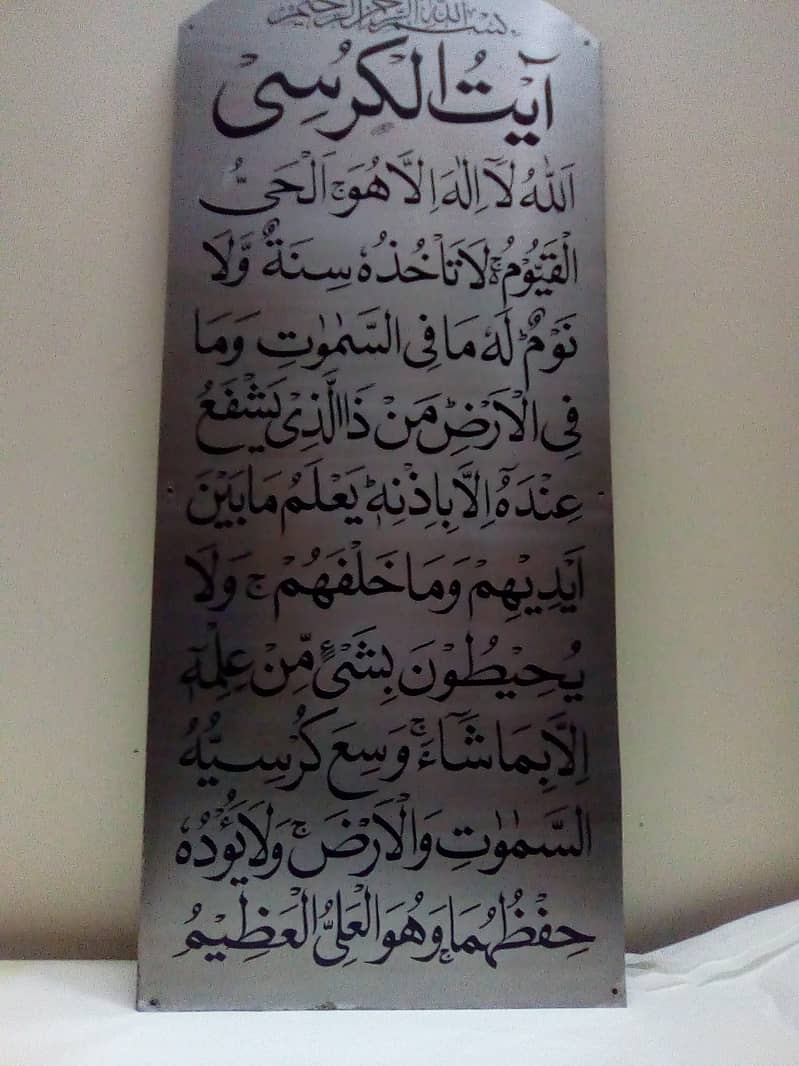 بسم الله الرحمن الرحيم
آيْتُ الْكُرْسِىْ
اَللّٰهُ لَآ اِلٰهَ اِلَّا هُوَ ۚ اَلْحَىُّ
الْقَيُّوْمُ ۚ لَا تَاْخُذُهٗ سِنَةٌ وَّلَا
نَوْمٌ ؕ لَهٗ مَا فِى السَّمٰوٰتِ وَمَا
فِى الْاَرْضِ ؕ مَنْ ذَا الَّذِىْ يَشْفَعُ
عِنْدَهٗٓ اِلَّا بِاِذْنِهٖ ؕ يَعْلَمُ مَا بَيْنَ
اَيْدِيْهِمْ وَمَا خَلْفَهُمْ ۚ وَلَا
يُحِيْطُوْنَ بِشَىْءٍ مِّنْ عِلْمِهٖٓ
اِلَّا بِمَا شَآءَ ۚ وَسِعَ كُرْسِيُّهُ
السَّمٰوٰتِ وَالْاَرْضَ ۚ وَلَا يَؤُدُهٗ
حِفْظُهُمَا ۚ وَهُوَ الْعَلِىُّ الْعَظِيْمُ